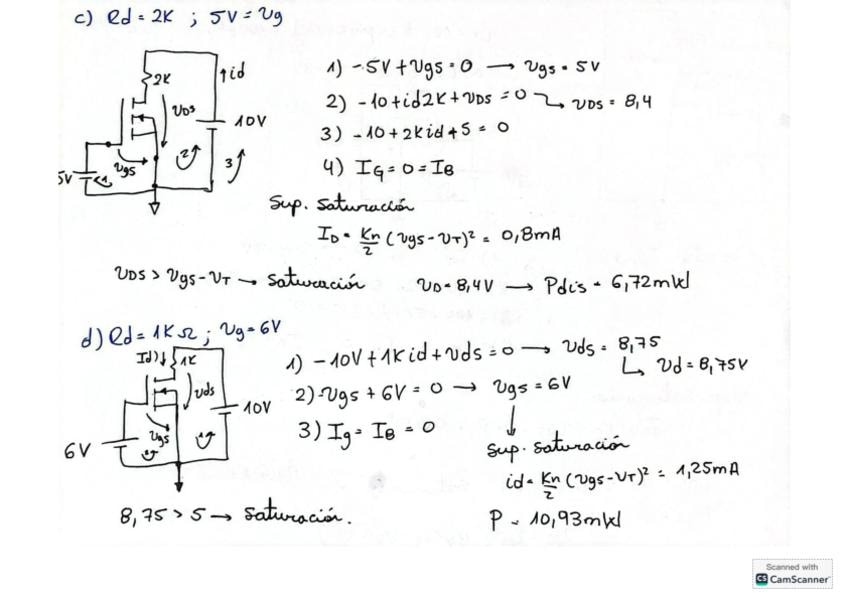 c) Rd = 2K ; 5V = Vg
1) -5V + Vgs = 0 → Vgs = 5V
2) -10 + id2K + VDS = 0 → VDS = 8,4
3) -10 + 2Kid + 5 = 0
4) IG = 0 = IB
2K
↑id
VDS
10V
Vgs
2
3
5V
1
Sup. saturación
ID = Kn/2 (Vgs - VT)² = 0,8mA
VDS > Vgs - VT → saturación VD = 8,4V → Pdis = 6,72mW
d) Rd = 1KΩ ; Vg = 6V
Id)↓
1K
Vds
10V
Vgs
6V
1) -10V + 1Kid + Vds = 0 → Vds = 8,75
↳ Vd = 8,75V
2) -Vgs + 6V = 0 → Vgs = 6V
3) Ig = IB = 0
↓
Sup. saturación
id = Kn/2 (Vgs - VT)² = 1,25mA
8,75 > 5 → saturación.
P = 10,93mW
Scanned with
CS CamScanner